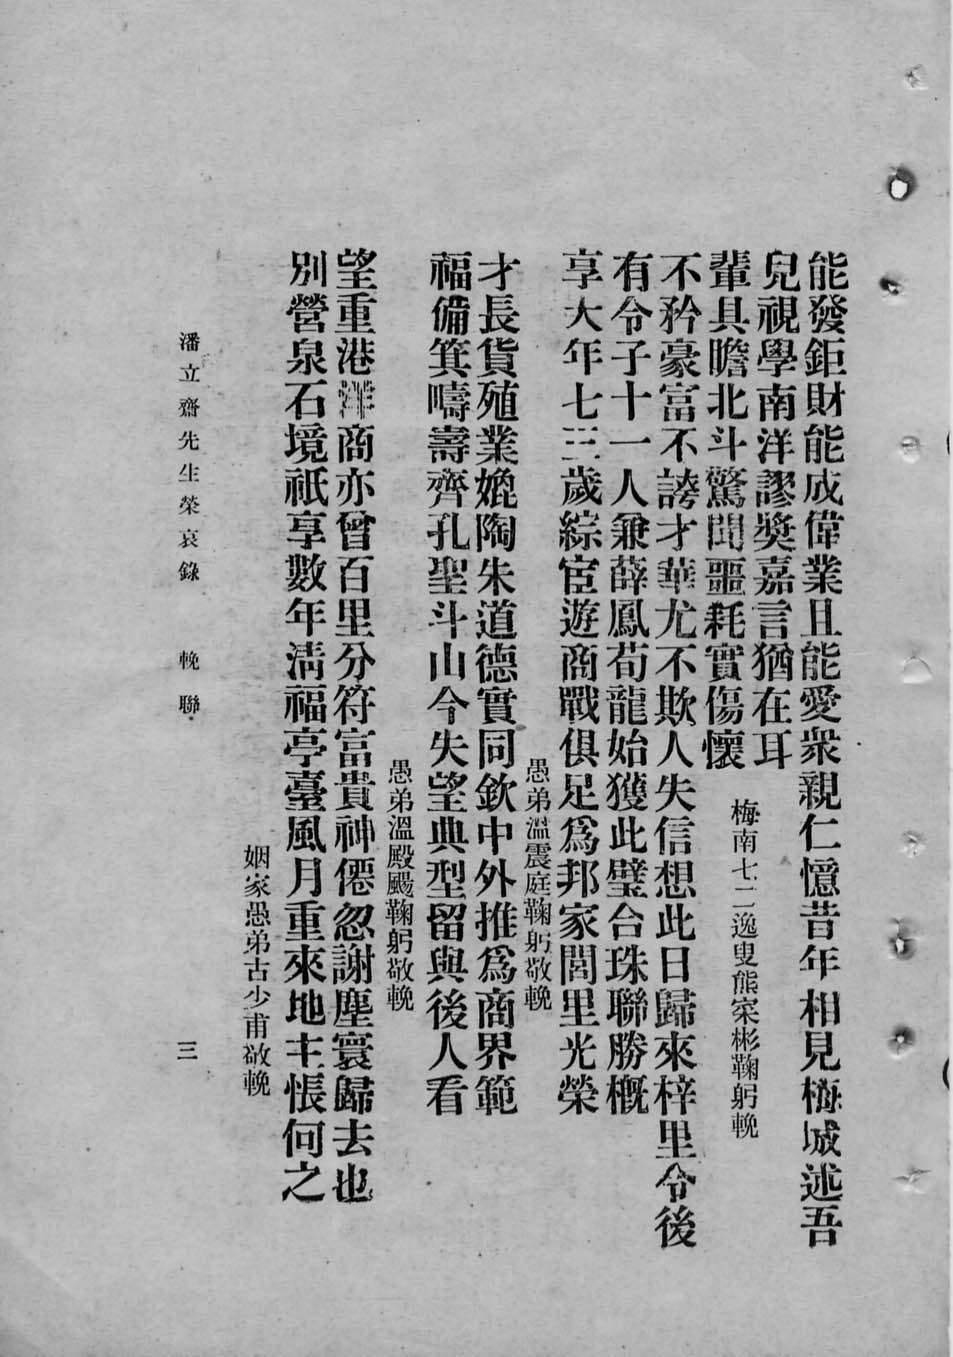 能發鉅財能成偉業且能愛衆親仁憶昔年相見梅城述吾
兒視學南洋謬奬嘉言猶在耳
輩具瞻北斗驚聞噩耗實傷懷
梅南七二逸叟熊寀彬鞠躬輓
不矜豪富不誇才華尤不欺人失信想此日歸來梓里令後
有令子十一人兼薛鳳荀龍始獲此璧合珠聯勝概
享大年七三歲綜宦遊商戰俱足爲邦家閭里光榮
愚弟溫震庭鞠躬敬輓
才長貨殖業媲陶朱道德實同欽中外推爲商界範
福備箕嚋壽齊孔聖斗山今失望典型留與後人看
愚弟溫殿颺鞠躬敬輓
望重港洋商亦曾百里分符富貴神僊忽謝塵寰歸去也
別營泉石境祇享數年淸福亭臺風月重來地主悵何之
姻家愚弟古少甫敬輓
潘立齋先生榮哀錄 輓聯 三